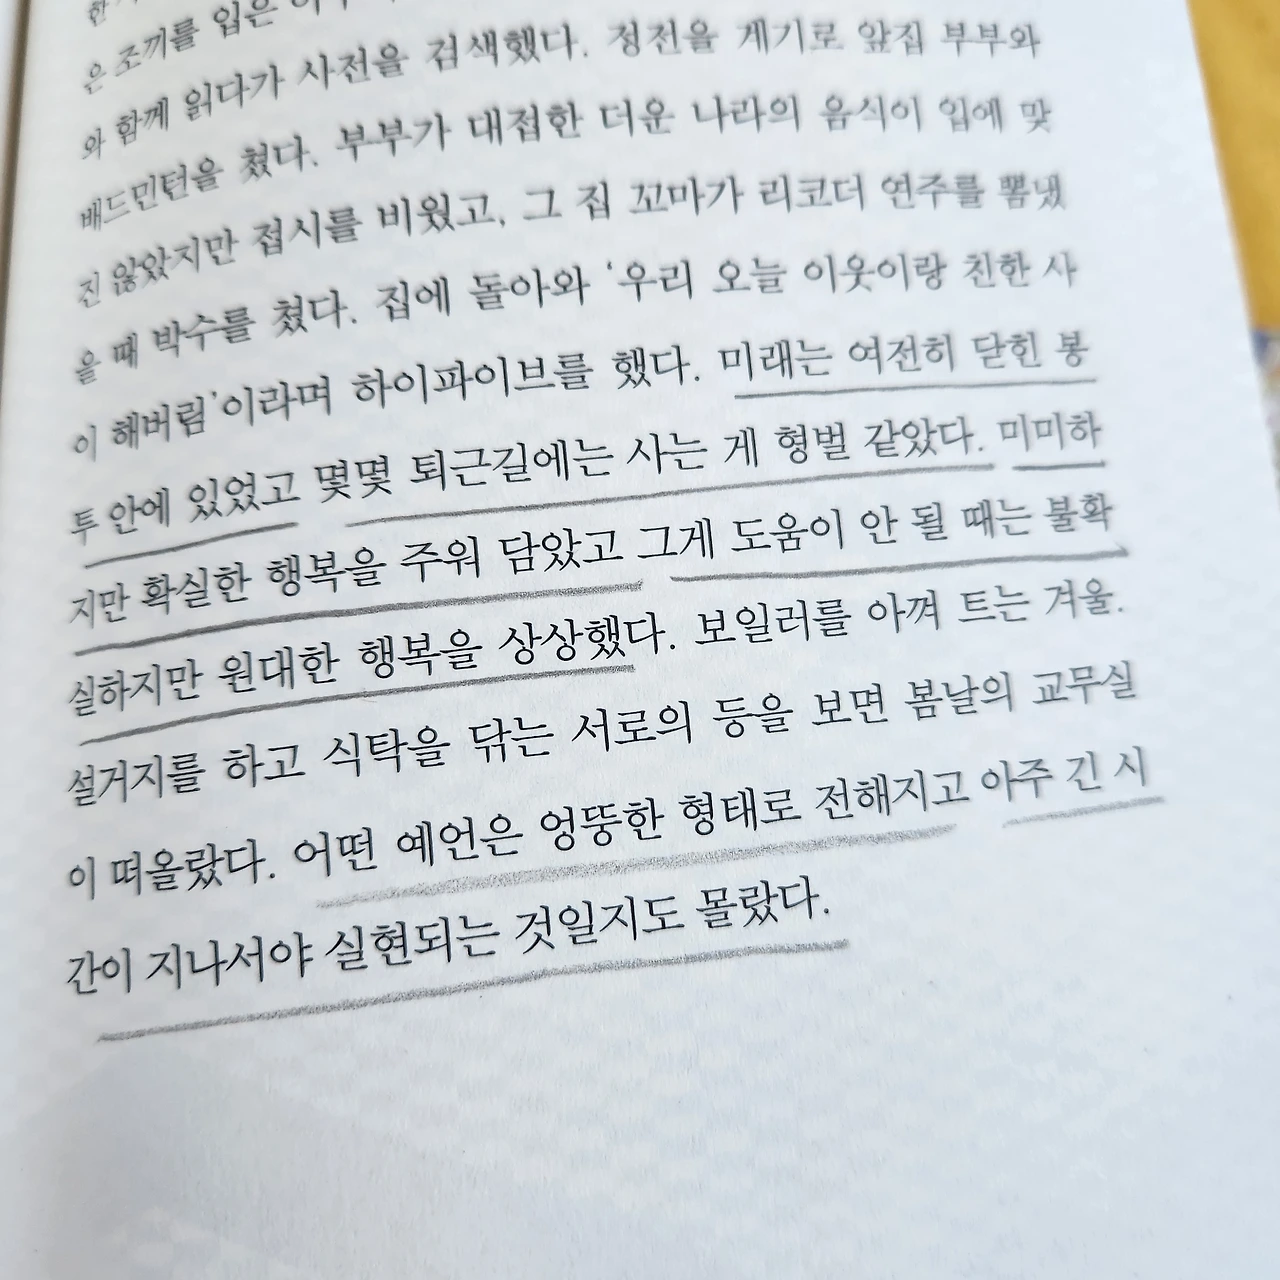 은 조끼를 입은
와 함께 읽다가 사전을 검색했다. 정전을 계기로 앞집 부부와
배드민턴을 쳤다. 부부가 대접한 더운 나라의 음식이 입에 맞
진 않았지만 접시를 비웠고, 그 집 꼬마가 리코더 연주를 뽐냈
을 때 박수를 쳤다. 집에 돌아와 ‘우리 오늘 이웃이랑 친한 사
이 해버림’이라며 하이파이브를 했다. 미래는 여전히 닫힌 봉
투 안에 있었고 몇몇 퇴근길에는 사는 게 형벌 같았다. 미미하
지만 확실한 행복을 주워 담았고 그게 도움이 안 될 때는 불확
실하지만 원대한 행복을 상상했다. 보일러를 아껴 트는 겨울.
설거지를 하고 식탁을 닦는 서로의 등을 보면 봄날의 교무실
이 떠올랐다. 어떤 예언은 엉뚱한 형태로 전해지고 아주 긴 시
간이 지나서야 실현되는 것일지도 몰랐다.